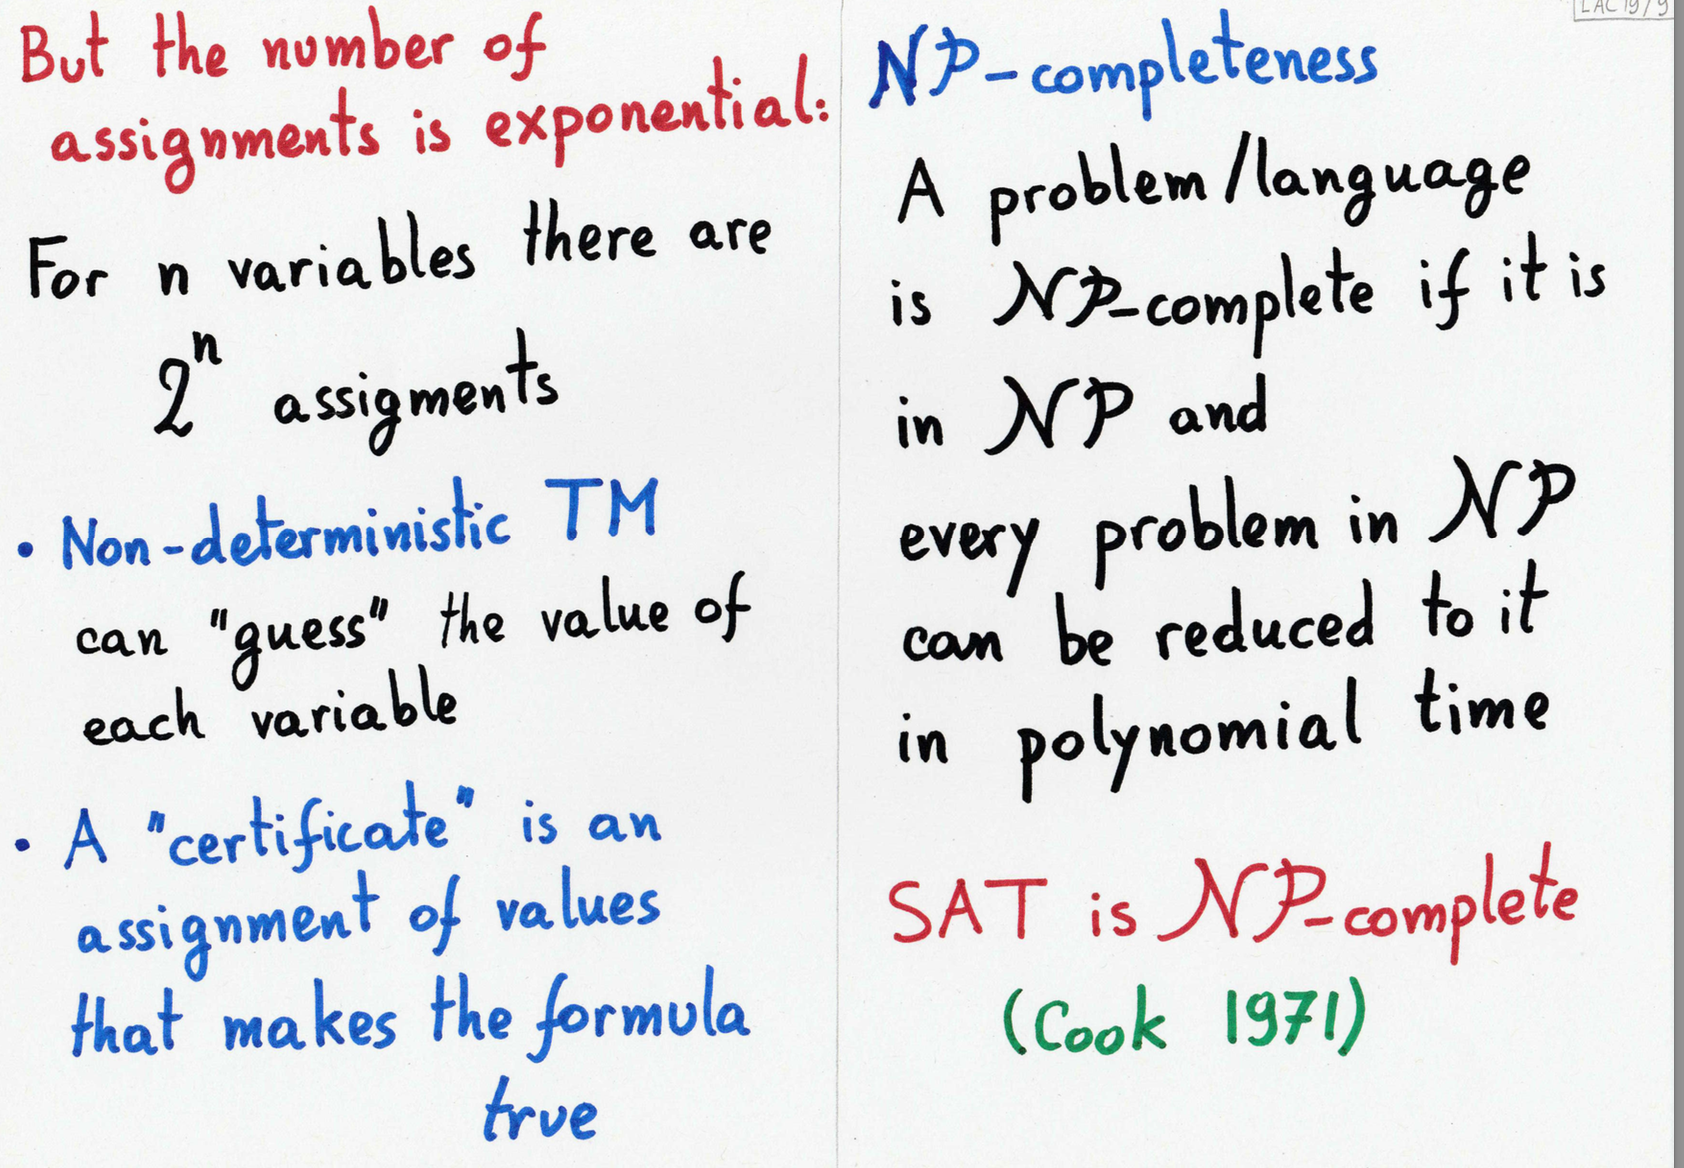 But the number of
assignments is exponential:
For n variables there are
2ⁿ assigments
• Non-deterministic TM
can "guess" the value of
each variable
• A "certificate" is an
assignment of values
that makes the formula
true
LAC 19/9
NP-completeness
A problem/language
is NP-complete if it is
in NP and
every problem in NP
can be reduced to it
in polynomial time
SAT is NP-complete
(Cook 1971)